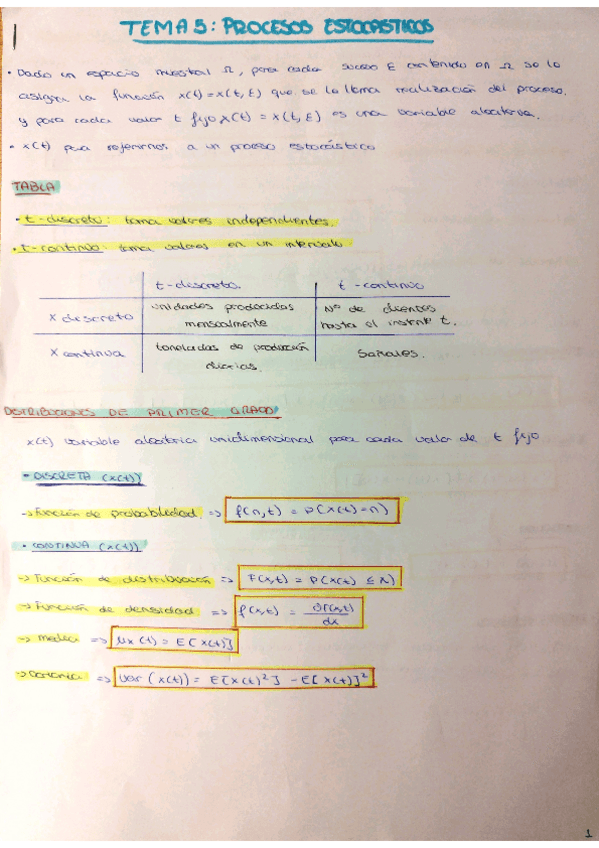 TEMA 5: PROCESOS ESTOCÁSTICOS
• Dado un espacio muestral Ω, para cada suceso E contenido en Ω se le
asigna la función x(t) = x(t, E) que se le llama realización del proceso,
y para cada valor t fijo, x(t) = x(t, E) es una variable aleatoria.
• x(t) para referirnos a un proceso estocástico
TABLA
• t-discreto: toma valores independientes.
• t-continuo: toma valores en un intervalo.
t-discreto. t-continuo
x discreto unidades producidas mensualmente Nº de clientes hasta el instante t.
x continua toneladas de producción diarias. Señales.
DISTRIBUCIONES DE PRIMER GRADO
x(t) variable aleatoria unidimensional para cada valor de t fijo
- DISCRETA (x(t))
→ Función de probabilidad. => f(n,t) = P(x(t)=n)
• CONTINUA (x(t))
→ Función de distribución => F(x,t) = P(x(t) ≤ x)
→ Función de densidad => f(x,t) = ∂F(x,t)/dx
→ media => μx(t) = E[x(t)]
→ Varianza => Var (x(t)) = E[x(t)²] - E[x(t)]²
1